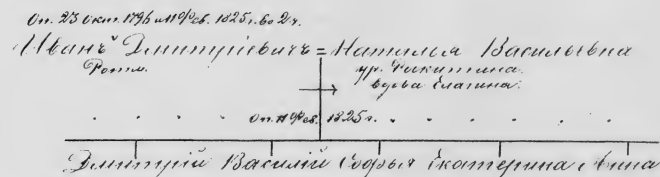 Оп. 23 Окт. 1796 и 11 Фев. 1825 г. во 2 ч.
Иванъ Дмитріевичъ = Наталья Васильевна
Ротм. ур. Никитина
вдова Елагина.
Оп. 11 Фев. 1825 г.
Дмитрій Василій Софья Екатерина Анна